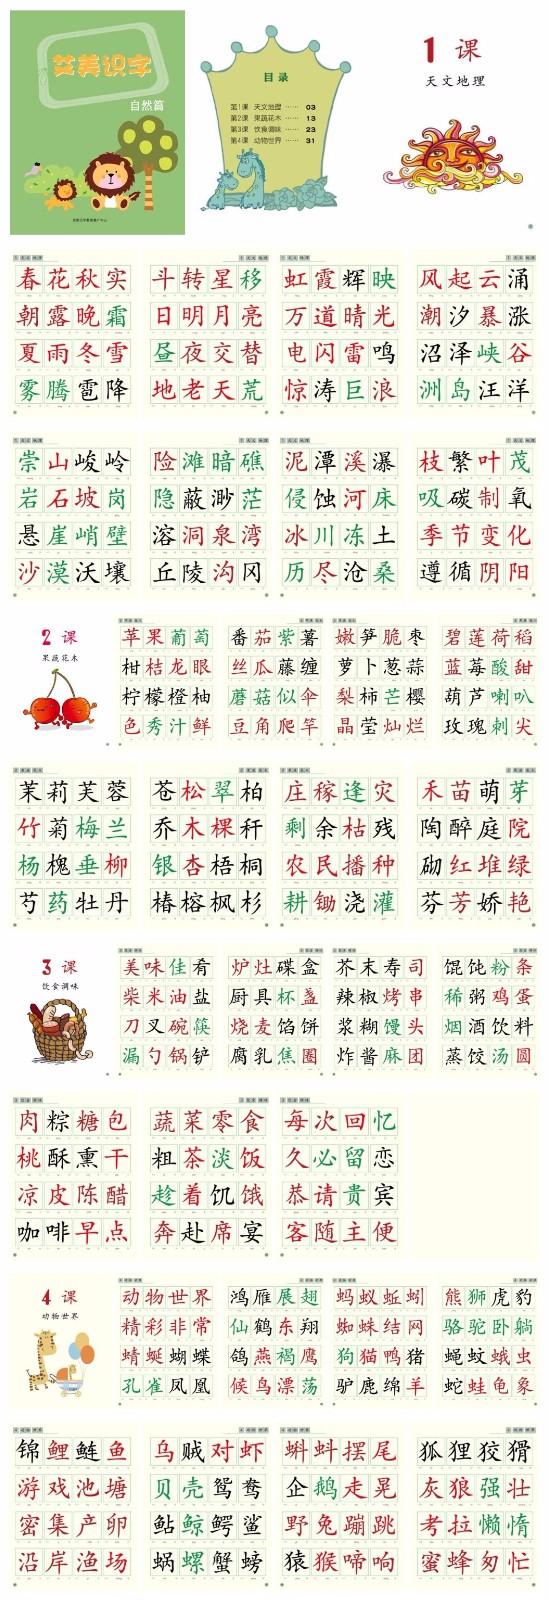 艾美识字
自然篇
目录
第1课 天文地理 …… 03
第2课 果蔬花木 …… 13
第3课 饮食调味 …… 23
第4课 动物世界 …… 31
1 课
天文地理
春花秋实
朝露晚霜
夏雨冬雪
雾腾雹降
斗转星移
日明月亮
昼夜交替
地老天荒
虹霞辉映
万道晴光
电闪雷鸣
惊涛巨浪
风起云涌
潮汐暴涨
沼泽峡谷
洲岛汪洋
崇山峻岭
岩石坡岗
悬崖峭壁
沙漠沃壤
险滩暗礁
隐蔽渺茫
溶洞泉湾
丘陵沟冈
泥潭溪瀑
侵蚀河床
冰川冻土
历尽沧桑
枝繁叶茂
吸碳制氧
季节变化
遵循阴阳
2 课
果蔬花木
苹果葡萄
柑桔龙眼
柠檬橙柚
色秀汁鲜
番茄紫薯
丝瓜藤缠
蘑菇似伞
豆角爬竿
嫩笋脆枣
萝卜葱蒜
梨柿芒樱
晶莹灿烂
碧莲荷稻
蓝莓酸甜
葫芦喇叭
玫瑰刺尖
茉莉芙蓉
竹菊梅兰
杨槐垂柳
芍药牡丹
苍松翠柏
乔木棵秆
银杏梧桐
椿榕枫杉
庄稼逢灾
剩余枯残
农民播种
耕锄浇灌
禾苗萌芽
陶醉庭院
砌红堆绿
芬芳娇艳
3 课
饮食调味
美味佳肴
柴米油盐
刀叉碗筷
漏勺锅铲
炉灶碟盒
厨具杯盏
烧麦馅饼
腐乳焦圈
芥末寿司
辣椒烤串
浆糊馒头
炸酱麻团
馄饨粉条
稀粥鸡蛋
烟酒饮料
蒸饺汤圆
肉粽糖包
桃酥熏干
凉皮陈醋
咖啡早点
蔬菜零食
粗茶淡饭
趁着饥饿
奔赴席宴
每次回忆
久必留恋
恭请贵宾
客随主便
4 课
动物世界
动物世界
精彩非常
蜻蜓蝴蝶
孔雀凤凰
鸿雁展翅
仙鹤东翔
鸽燕褐鹰
候鸟漂荡
蚂蚁蚯蚓
蜘蛛结网
狗猫鸭猪
驴鹿绵羊
熊狮虎豹
骆驼卧躺
蝇蚊蛾虫
蛇蛙龟象
锦鲤鲢鱼
游戏池塘
密集产卵
沿岸渔场
乌贼对虾
贝壳鸳鸯
鲇鲸鳄鲨
蜗螺蟹螃
蝌蚪摆尾
企鹅走晃
野兔蹦跳
猿猴啼响
狐狸狡猾
灰狼强壮
考拉懒惰
蜜蜂匆忙